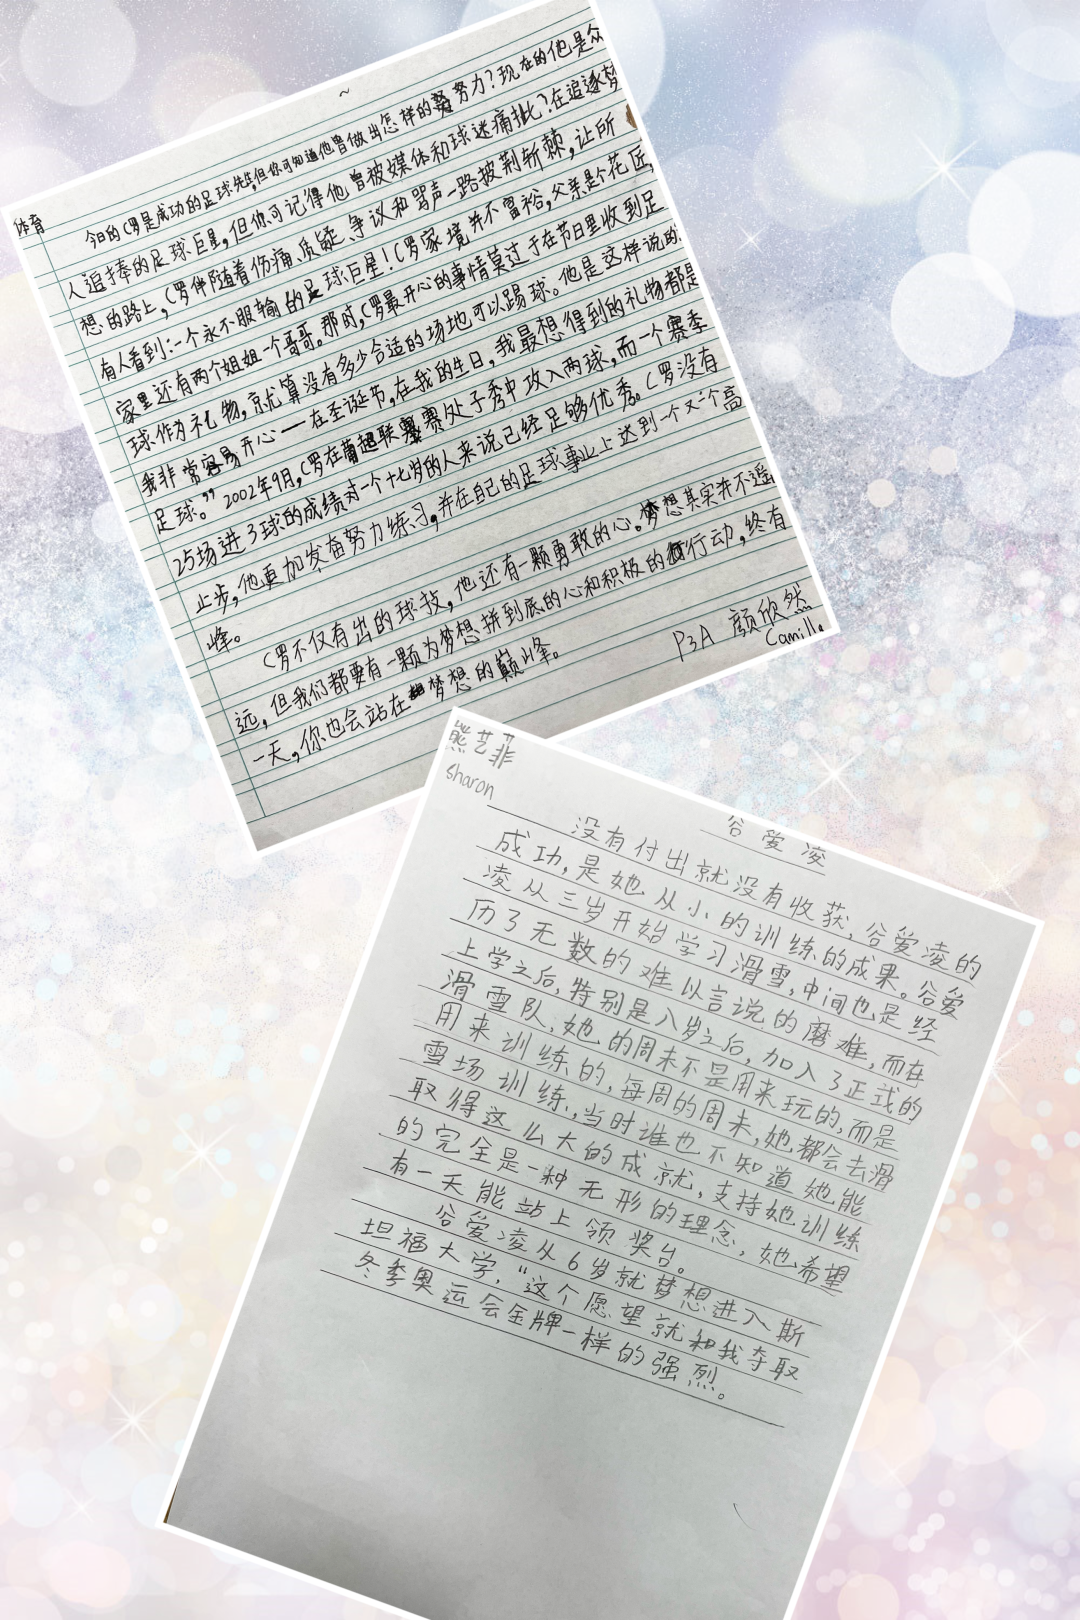 体育
今日的C罗是成功的足球先生,但你可知道他曾做出怎样的努力?现在的他是众
人追捧的足球巨星,但你可记得他曾被媒体和球迷痛批?在追逐梦
想的路上,C罗伴随着伤痛、质疑、争议和骂声一路披荆斩棘,让所
有人看到:一个永不服输的足球巨星!C罗家境并不富裕,父亲是个花匠,
家里还有两个姐姐一个哥哥。那时,C罗最开心的事情莫过于在节日里收到足
球作为礼物,就算没有多少合适的场地可以踢球。他是这样说的
我非常容易开心——在圣诞节,在我的生日,我最想得到的礼物都是
足球。”2002年9月,C罗在葡超联赛处子秀中攻入两球,而一个赛季
25场进了3球的成绩对一个十七岁的人来说已经足够优秀。C罗没有
止步,他更加发奋努力练习,并在自己的足球事业上达到一个又一个高
峰。
C罗不仅有出的球技,他还有一颗勇敢的心。梦想其实并不遥
远,但我们都要有一颗为梦想拼到底的心和积极的行动,终有
一天,你也会站在梦想的巅峰。
P3A 颜欣然
Camilla
熊艺菲
sharon
谷爱凌
没有付出就没有收获,谷爱凌的
成功,是她从小的训练的成果。谷爱
凌从三岁开始学习滑雪,中间也是经
历了无数的难以言说的磨难,而在
上学之后,特别是八岁之后,加入了正式的
滑雪队,她的周末不是用来玩的,而是
用来训练的,每周的周末,她都会去滑
雪场训练,当时谁也不知道她能
取得这么大的成就,支持她训练
的完全是一种无形的理念,她希望
有一天能站上领奖台。
谷爱凌从6岁就梦想进入斯
坦福大学,“这个愿望就和我夺取
冬季奥运会金牌一样的强烈。